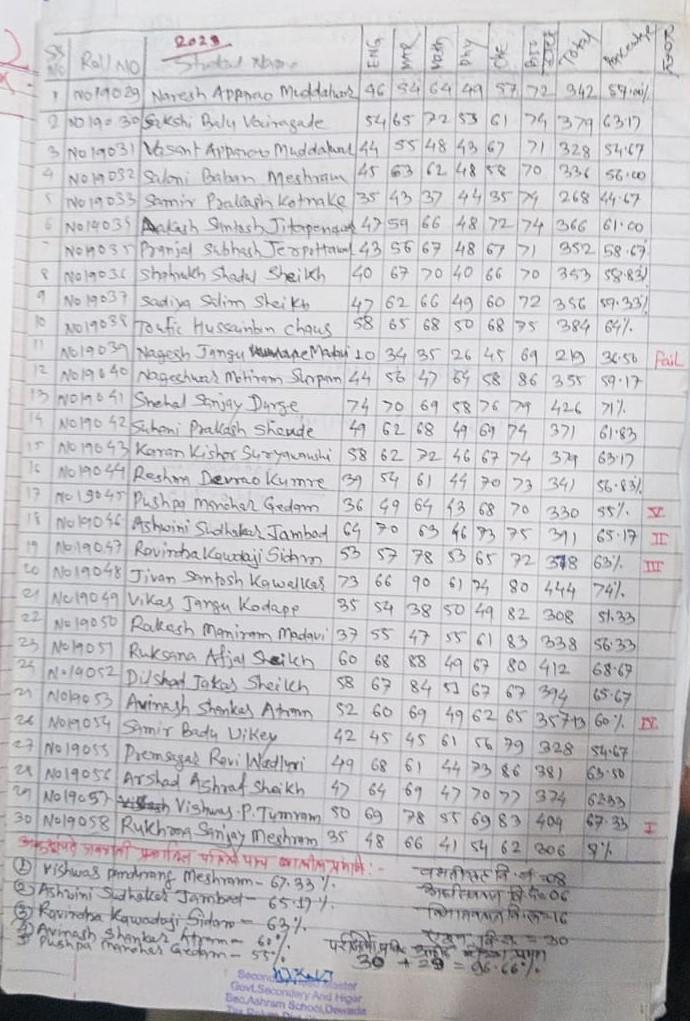 2023
Sr. No Roll No Student Name ENG Mar Math Phy Che Bio Total Percentage
1 No19029 Naresh Apparao Muddalwar 46 54 64 49 57 72 342 57.00%
2 No19030 Sakshi Balu Vairagade 54 65 72 53 61 74 379 63.17
3 No19031 Vasant Apparao Muddalwar 44 55 48 43 67 71 328 54.67
4 No19032 Saloni Baban Meshram 45 63 62 48 58 70 336 56.00
5 No19033 Samir Prakash Kotnake 35 43 37 44 35 74 268 44.67
6 No19034 Aakash Santosh 47 59 66 48 72 74 366 61.00
7 No19035 Pranjal Subhash 43 56 67 48 67 71 352 58.67
8 No19036 Shahrukh Shadul Sheikh 40 67 70 40 66 70 353 58.83%
9 No19037 Sadiya Salim Sheikh 47 62 66 49 60 72 356 59.33%
10 No19038 Toufic Hussainbin Chaus 58 65 68 50 68 75 384 64%
11 No19039 Nagesh Jangu 10 34 35 26 45 69 219 36.50 Fail
12 No19040 Nageshwar Motiram Surpam 44 56 47 64 58 86 355 59.17
13 No19041 Snehal Sanjay Durge 74 70 69 58 76 79 426 71%
14 No19042 Suhani Prakash Shende 49 62 68 49 69 74 371 61.83
15 No19043 Karan Kishor Suryawanshi 58 62 72 46 67 74 379 63.17
16 No19044 Reshma Devrao Kumre 39 54 61 44 70 73 341 56.83%
17 No19045 Pushpa Manohar Gedam 36 49 64 43 68 70 330 55% V
18 No19046 Ashwini Sudhakar Jambod 64 70 63 46 73 75 391 65.17 II
19 No19047 Ravindra Kawadaji Sidam 53 57 78 53 65 72 378 63% III
20 No19048 Jivan Santosh Kawalkar 73 66 90 61 74 80 444 74%
21 No19049 Vikas Jangu Kodape 35 54 38 50 49 82 308 51.33
22 No19050 Rakesh Maniram Madavi 37 55 47 55 61 83 338 56.33
23 No19051 Ruksana Afjal Sheikh 60 68 88 49 67 80 412 68.67
24 No19052 Dilshad Jakar Sheikh 58 67 84 51 67 67 394 65.67
25 No19053 Avinash Shankar Atram 52 60 69 49 62 65 357 60% IV
26 No19054 Samir Badu Uikey 42 45 45 61 56 79 328 54.67
27 No19055 Premsagar Ravi Wadluri 49 68 61 44 73 86 381 63.50
28 No19056 Arshad Ashraf Sheikh 47 64 69 47 70 77 374 62.33
29 No19057 Vishwas.P.Tumram 50 69 78 55 69 83 404 67.33 I
30 No19058 Rukhma Sanjay Meshram 35 48 66 41 54 62 306 51%
① Vishwas Pandurang Meshram - 67.33%. = 08
② Ashwini Sudhakar Jambod - 65.17% = 06
③ Ravindra Kawadaji Sidam - 63% = 16
④ Avinash Shankar Atram - 60% = 30
5 Pushpa Manohar Gedam - 55%
30 + 29 = 96.66%
Secondary Head Master
Govt.Secondary And Higer
Sec.Ashram School,Dewada